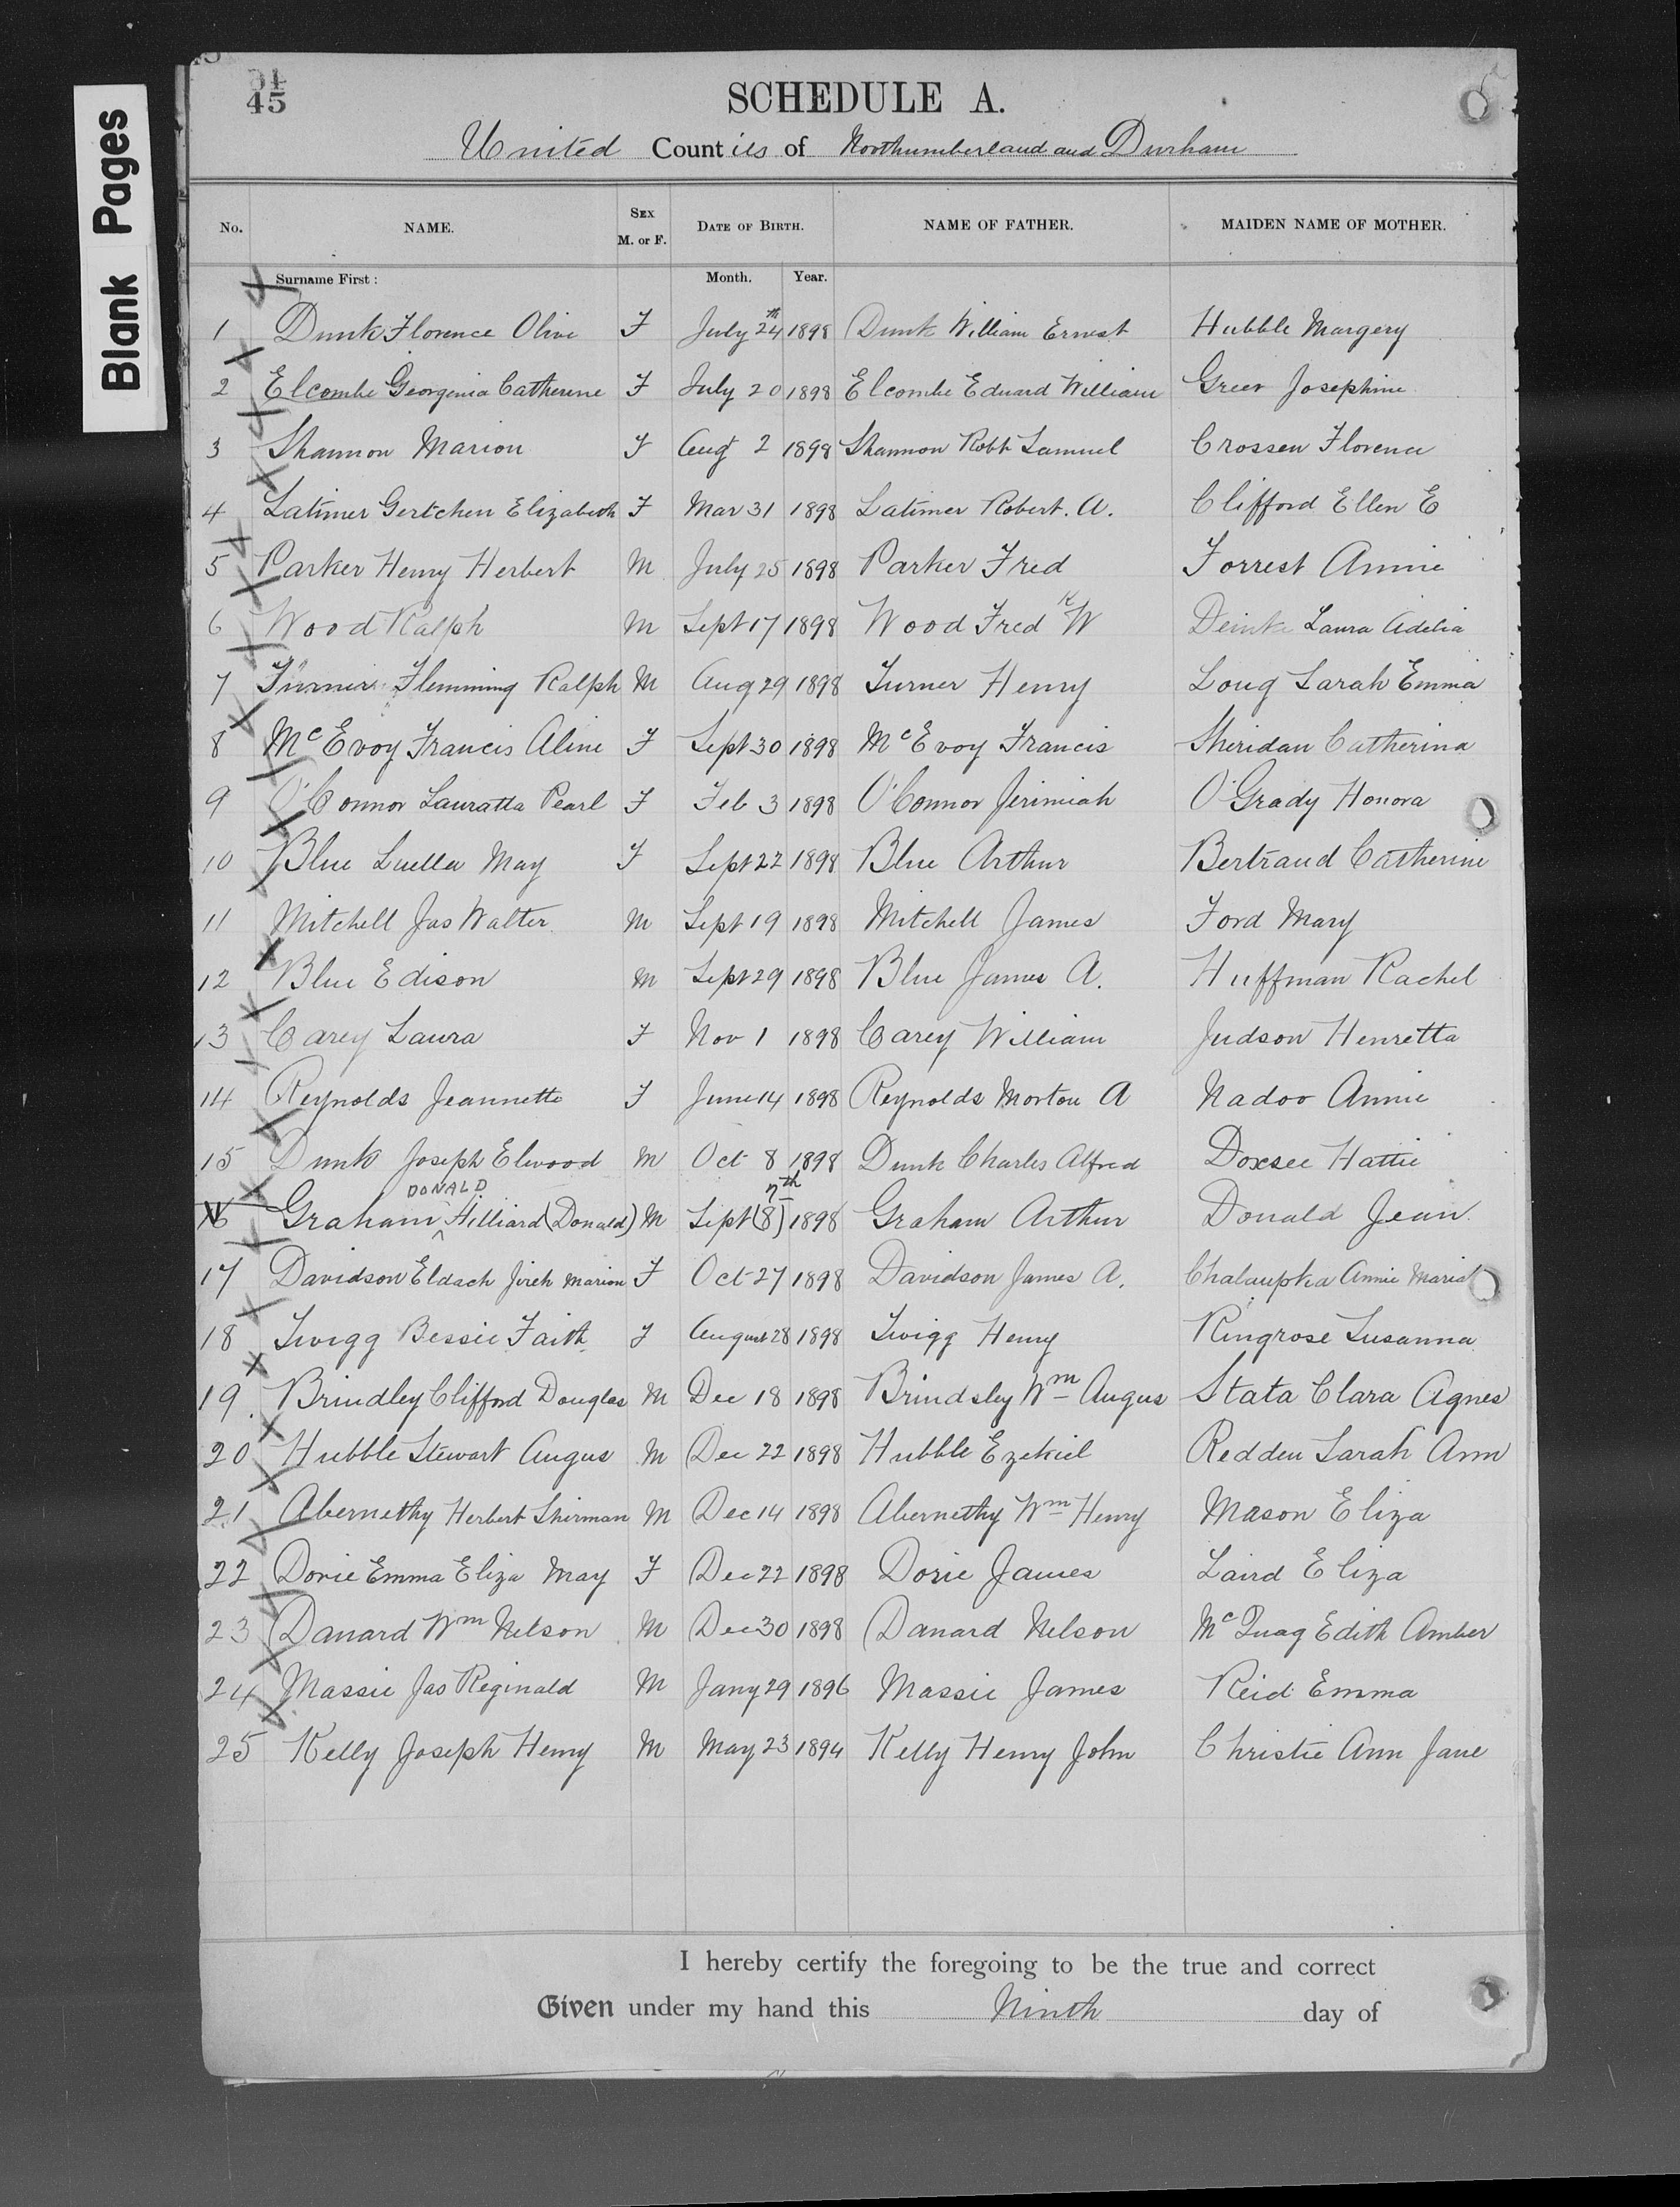 Blank Pages
45
SCHEDULE A.
United Counties of Northumberland and Durham
No. NAME. SEX M. or F. DATE OF BIRTH. NAME OF FATHER. MAIDEN NAME OF MOTHER.
Surname First: Month. Year.
1 Dunk Florence Olive F July 24th 1898 Dunk William Ernest Hubble Margery
2 Elcombe Georgenia Catherine F July 20 1898 Elcombe Edward William Greer Josephine
3 Shannon Marion F Aug 2 1898 Shannon Robt Samuel Crossen Florence
4 Latimer Gertchen Elizabeth F Mar 31 1898 Latimer Robert. A. Clifford Ellen E
5 Parker Henry Herbert M July 25 1898 Parker Fred Forrest Annie
6 Wood Ralph M Sept 17 1898 Wood Fred K W Laura Adelia
7 Turner Flemming Ralph M Aug 29 1898 Turner Henry Long Sarah Emma
8 McEvoy Francis Aline F Sept 30 1898 McEvoy Francis Sheridan Catherina
9 O'Connor Lauratta Pearl F Feb 3 1898 O'Connor Jerimiah O'Grady Honora
10 Blue Luella May F Sept 22 1898 Blue Arthur Bertrand Catherine
11 Mitchell Jas Walter M Sept 19 1898 Mitchell James Ford Mary
12 Blue Edison M Sept 29 1898 Blue James A. Huffman Rachel
13 Carey Laura F Nov 1 1898 Carey William Judson Henretta
14 Reynolds Jeannette F June 14 1898 Reynolds Morton A Nadoo Annie
15 Dunk Joseph Elwood M Oct 8 1898 Dunk Charles Alfred Doxsee Hattie
DONALD 7th
16 Graham Hilliard (Donald) M Sept (8) 1898 Graham Arthur Donald Jean
17 Davidson Eldach Jireh Marion F Oct 27 1898 Davidson James A. Chalaupka Annie Maria
18 Twigg Bessie Faith F August 28 1898 Twigg Henry Ringrose Susanna
19 Brindley Clifford Douglas M Dec 18 1898 Brindsley Wm Angus Stata Clara Agnes
20 Hubble Stewart Angus M Dec 22 1898 Hubble Ezekiel Redden Sarah Ann
21 Abernethy Herbert Shirman M Dec 14 1898 Abernethy Wm Henry Mason Eliza
22 Dorie Emma Eliza May F Dec 22 1898 Dorie James Laird Eliza
23 Danard Wm Nelson M Dec 30 1898 Danard Nelson McQuag Edith Amber
24 Massie Jas Reginald M Jany 29 1896 Massie James Reid Emma
25 Kelly Joseph Henry M May 23 1894 Kelly Henry John Christie Ann Jane
I hereby certify the foregoing to be the true and correct
Given under my hand this Ninth day of